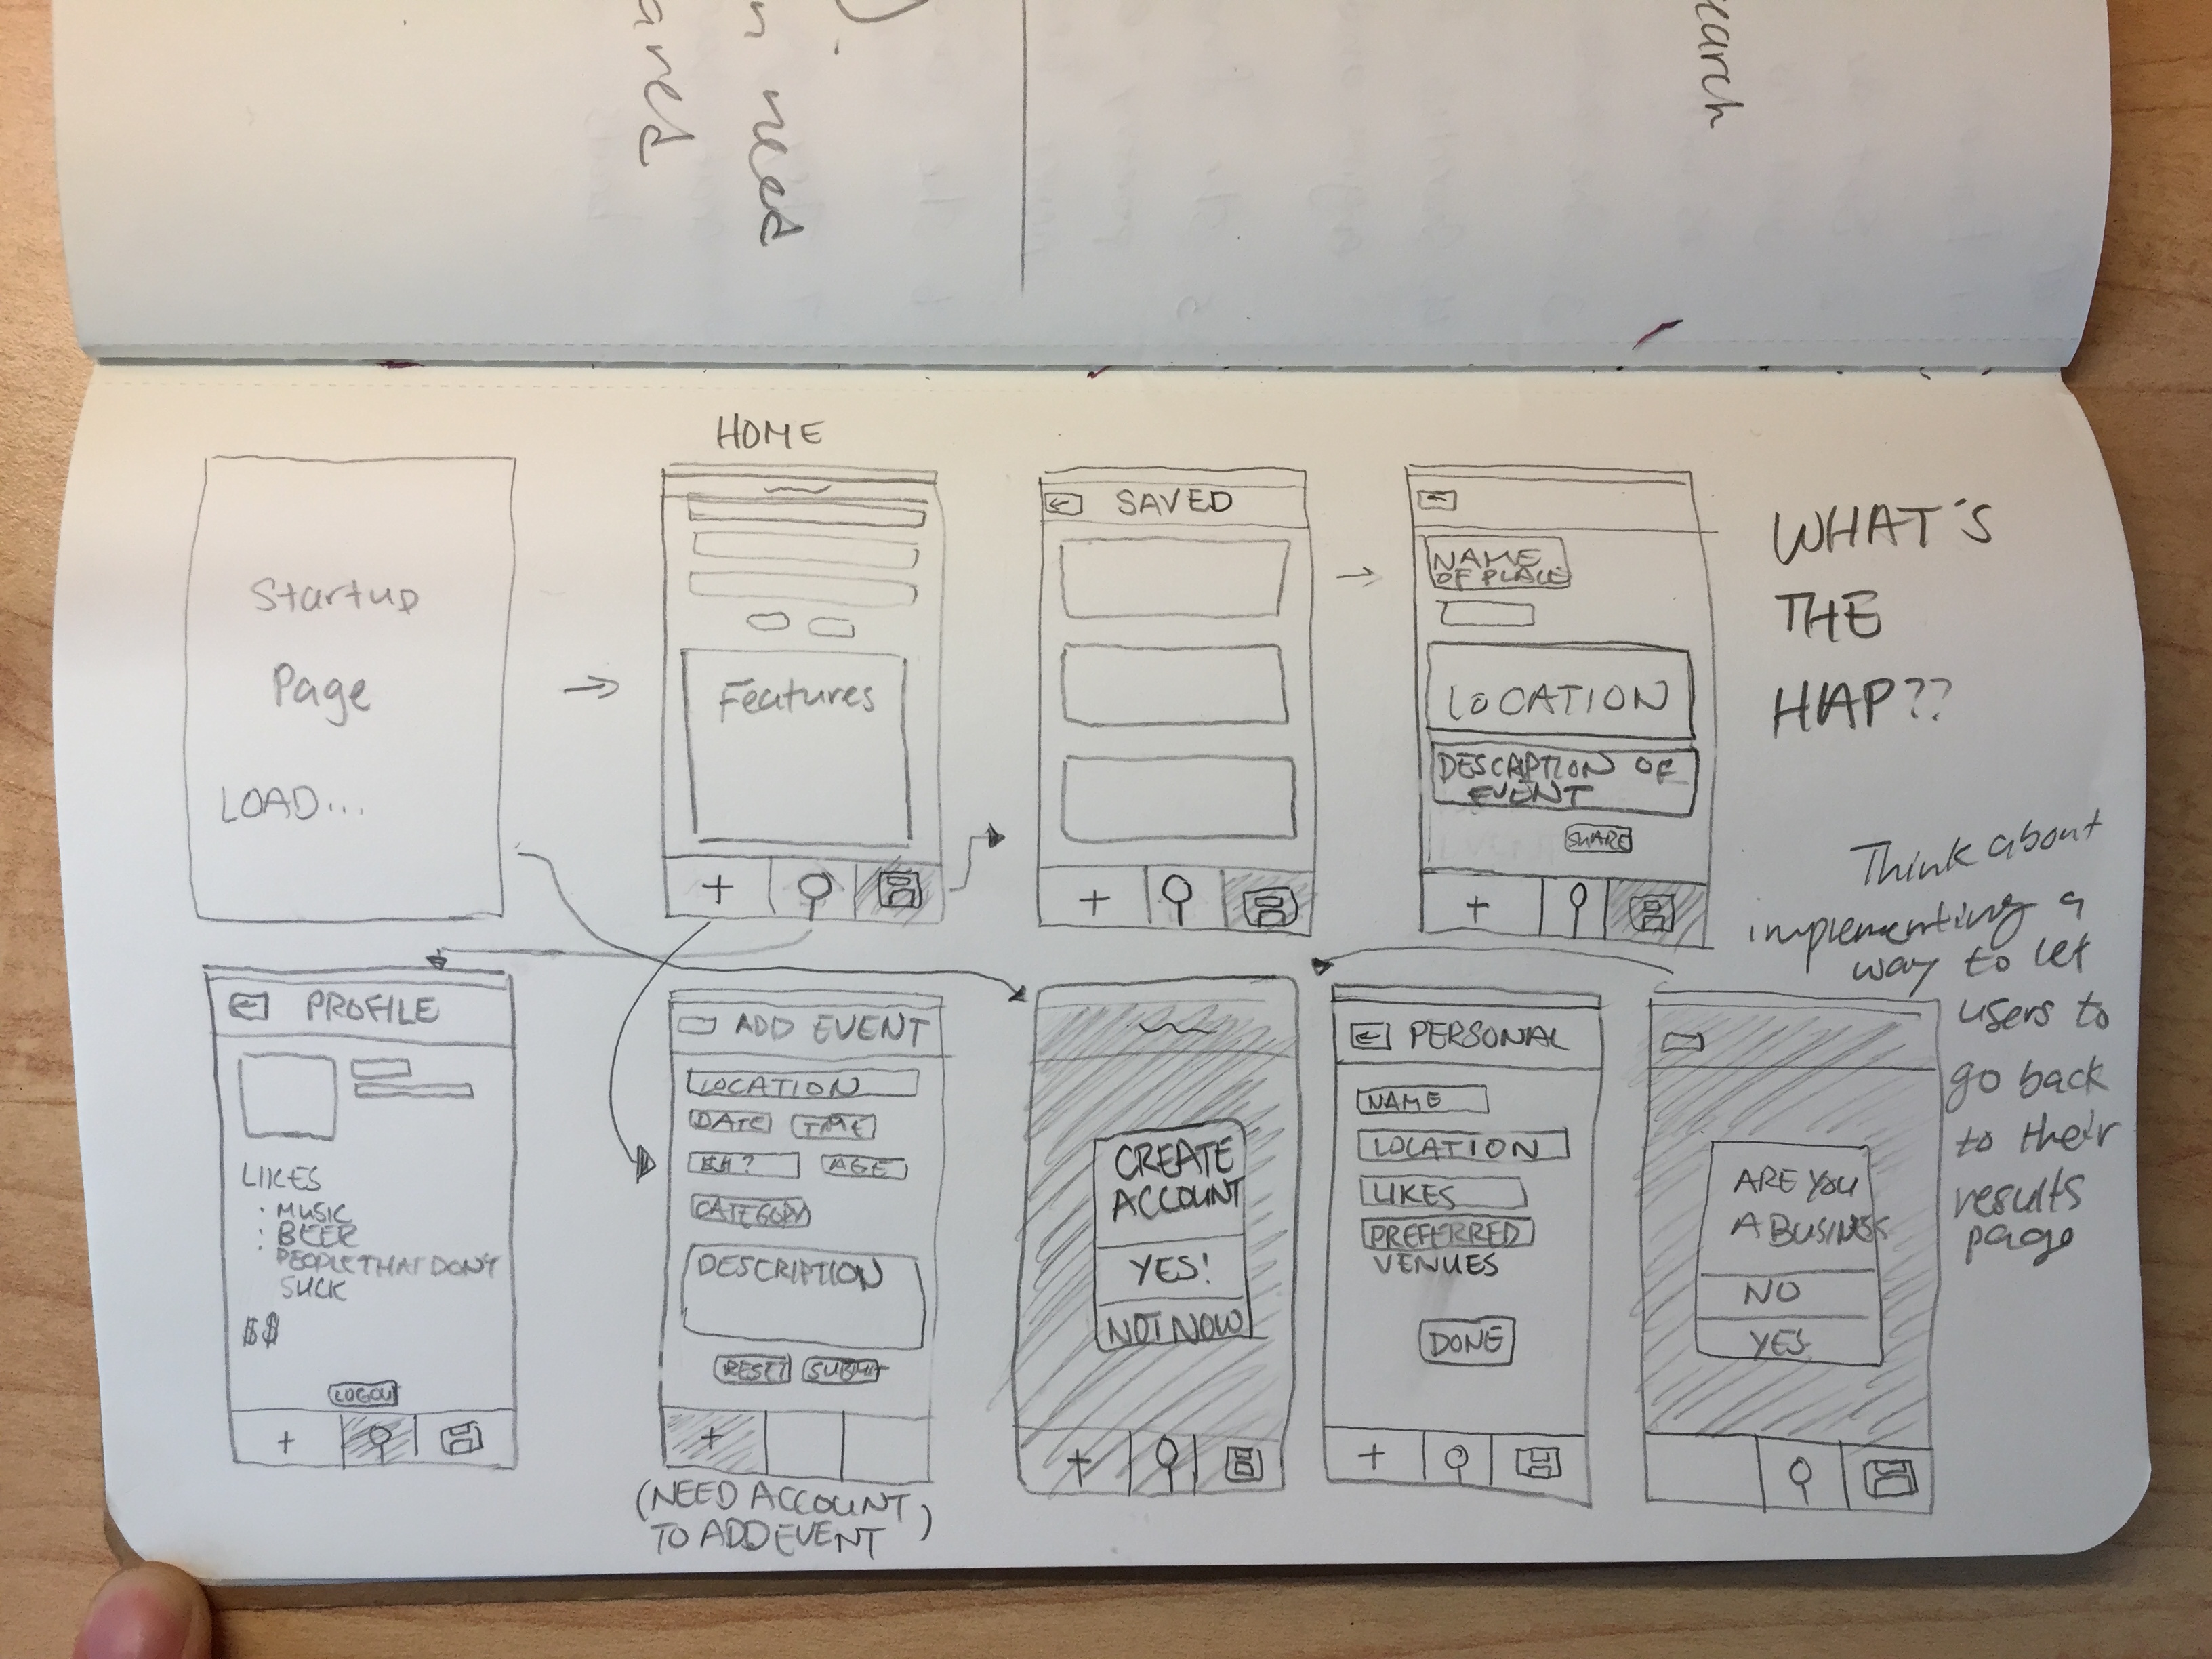 ared
n need
earch
HOME
Startup
Page
LOAD...
Features
SAVED
NAME
OF PLACE
LOCATION
DESCRIPTION OF
EVENT
SHARE
WHAT'S
THE
HAP??
Think about
implementing a
way to let
users to
go back
to their
results
page
PROFILE
LIKES
: MUSIC
: BEER
PEOPLE THAT DON'T
SUCK
$$
LOGOUT
ADD EVENT
LOCATION
DATE TIME
AGE
CATEGORY
DESCRIPTION
RESET SUBMIT
(NEED ACCOUNT
TO ADD EVENT)
CREATE
ACCOUNT
YES!
NOT NOW
PERSONAL
NAME
LOCATION
LIKES
PREFERRED
VENUES
DONE
ARE YOU
A BUSINESS
NO
YES